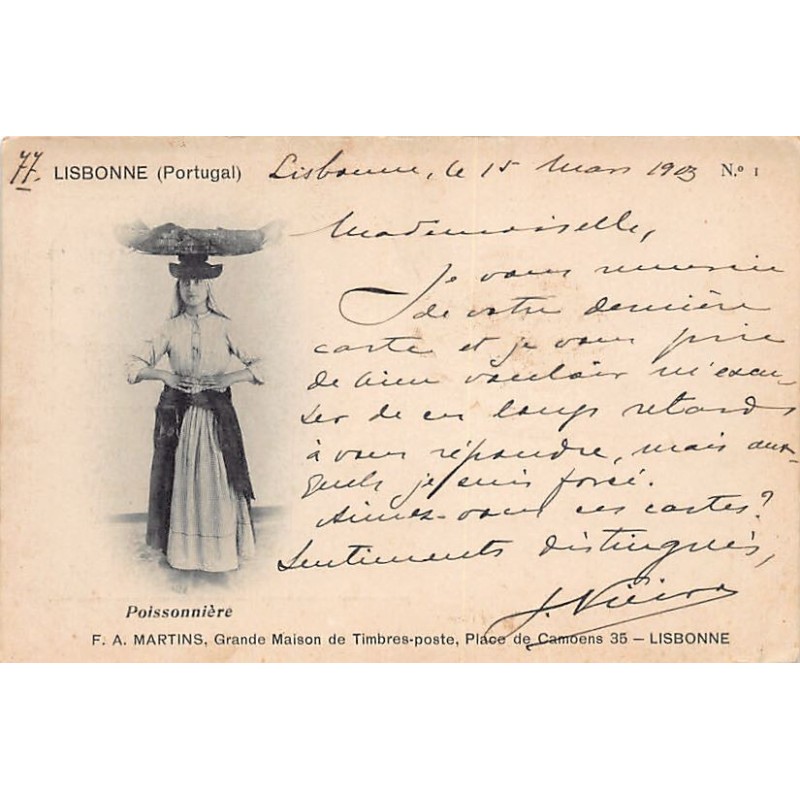 77. LISBONNE (Portugal) Lisbonne, le 15 Mars 1903 N.º 1
Mademoiselle,
Je vous remercie
de votre dernière
carte et je vous prie
de bien vouloir m'excu-
ser de ces longs retards
à vous répondre, mais aux-
quels je suis forcé.
Aimez-vous ces cartes?
Sentiments distingués,
J. Vieira
Poissonnière
F. A. MARTINS, Grande Maison de Timbres-poste, Place de Camoens 35 – LISBONNE